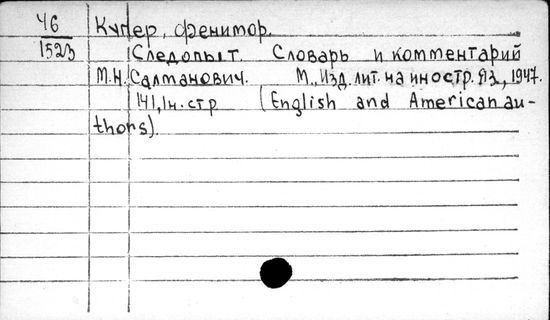 46
1523
Купер, Фенимор.
Следопыт. Словарь и комментарий
М.Н. Салманович. М., Изд. лит. на иностр. яз., 1947.
141, 1н. стр (English and American au-
thors).